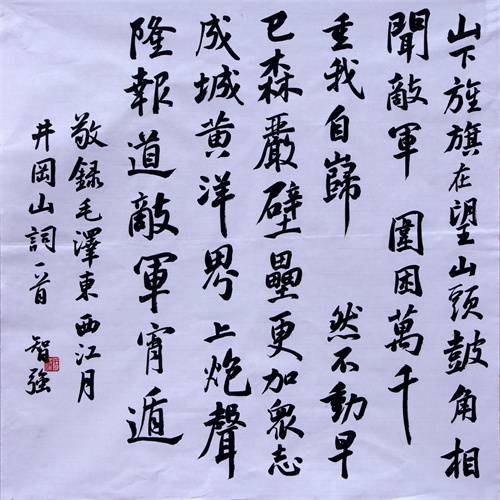 山下旌旗在望山頭鼓角相
聞敵軍 圍困萬千
重我自巋 然不動早
已森嚴壁壘更加眾志
成城黃洋界上炮聲
隆報道敵軍宵遁
敬録毛澤東西江月
井岡山詞一首 智强